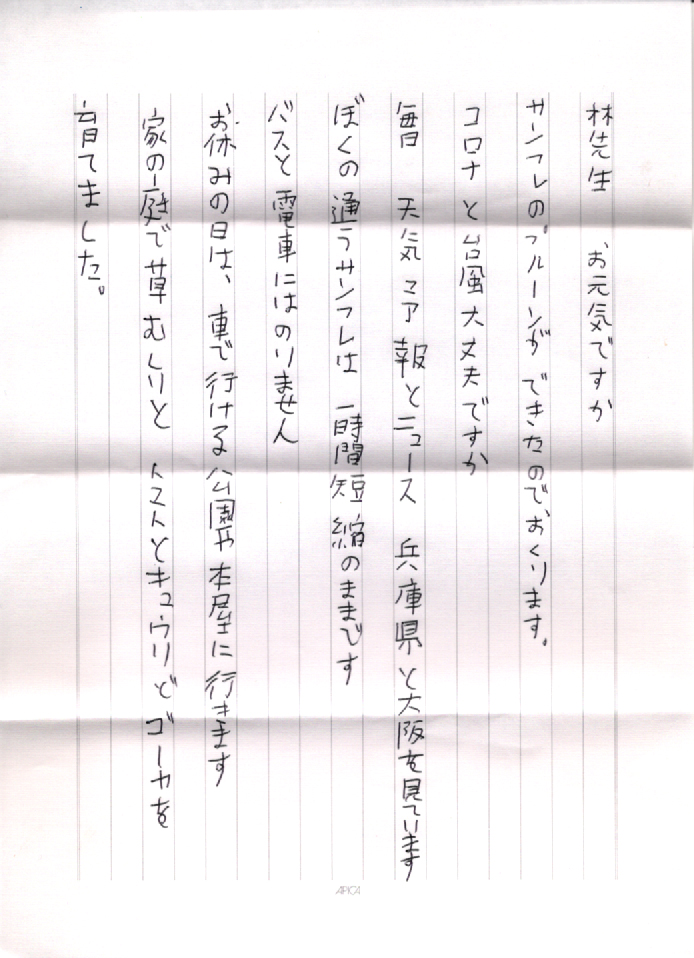 林先生　お元気ですか
サンフレのプルーンができたのでおくります。
コロナと台風大丈夫ですか
毎日　天気予報とニュース　兵庫県と大阪を見ています
ぼくの通うサンフレは　一時間短縮のままです
バスと電車にはのりません
お休みの日は、車で行ける公園や本屋に行きます
家の庭で草むしりと　トマトとキュウリとゴーヤを
育てました。
APICA